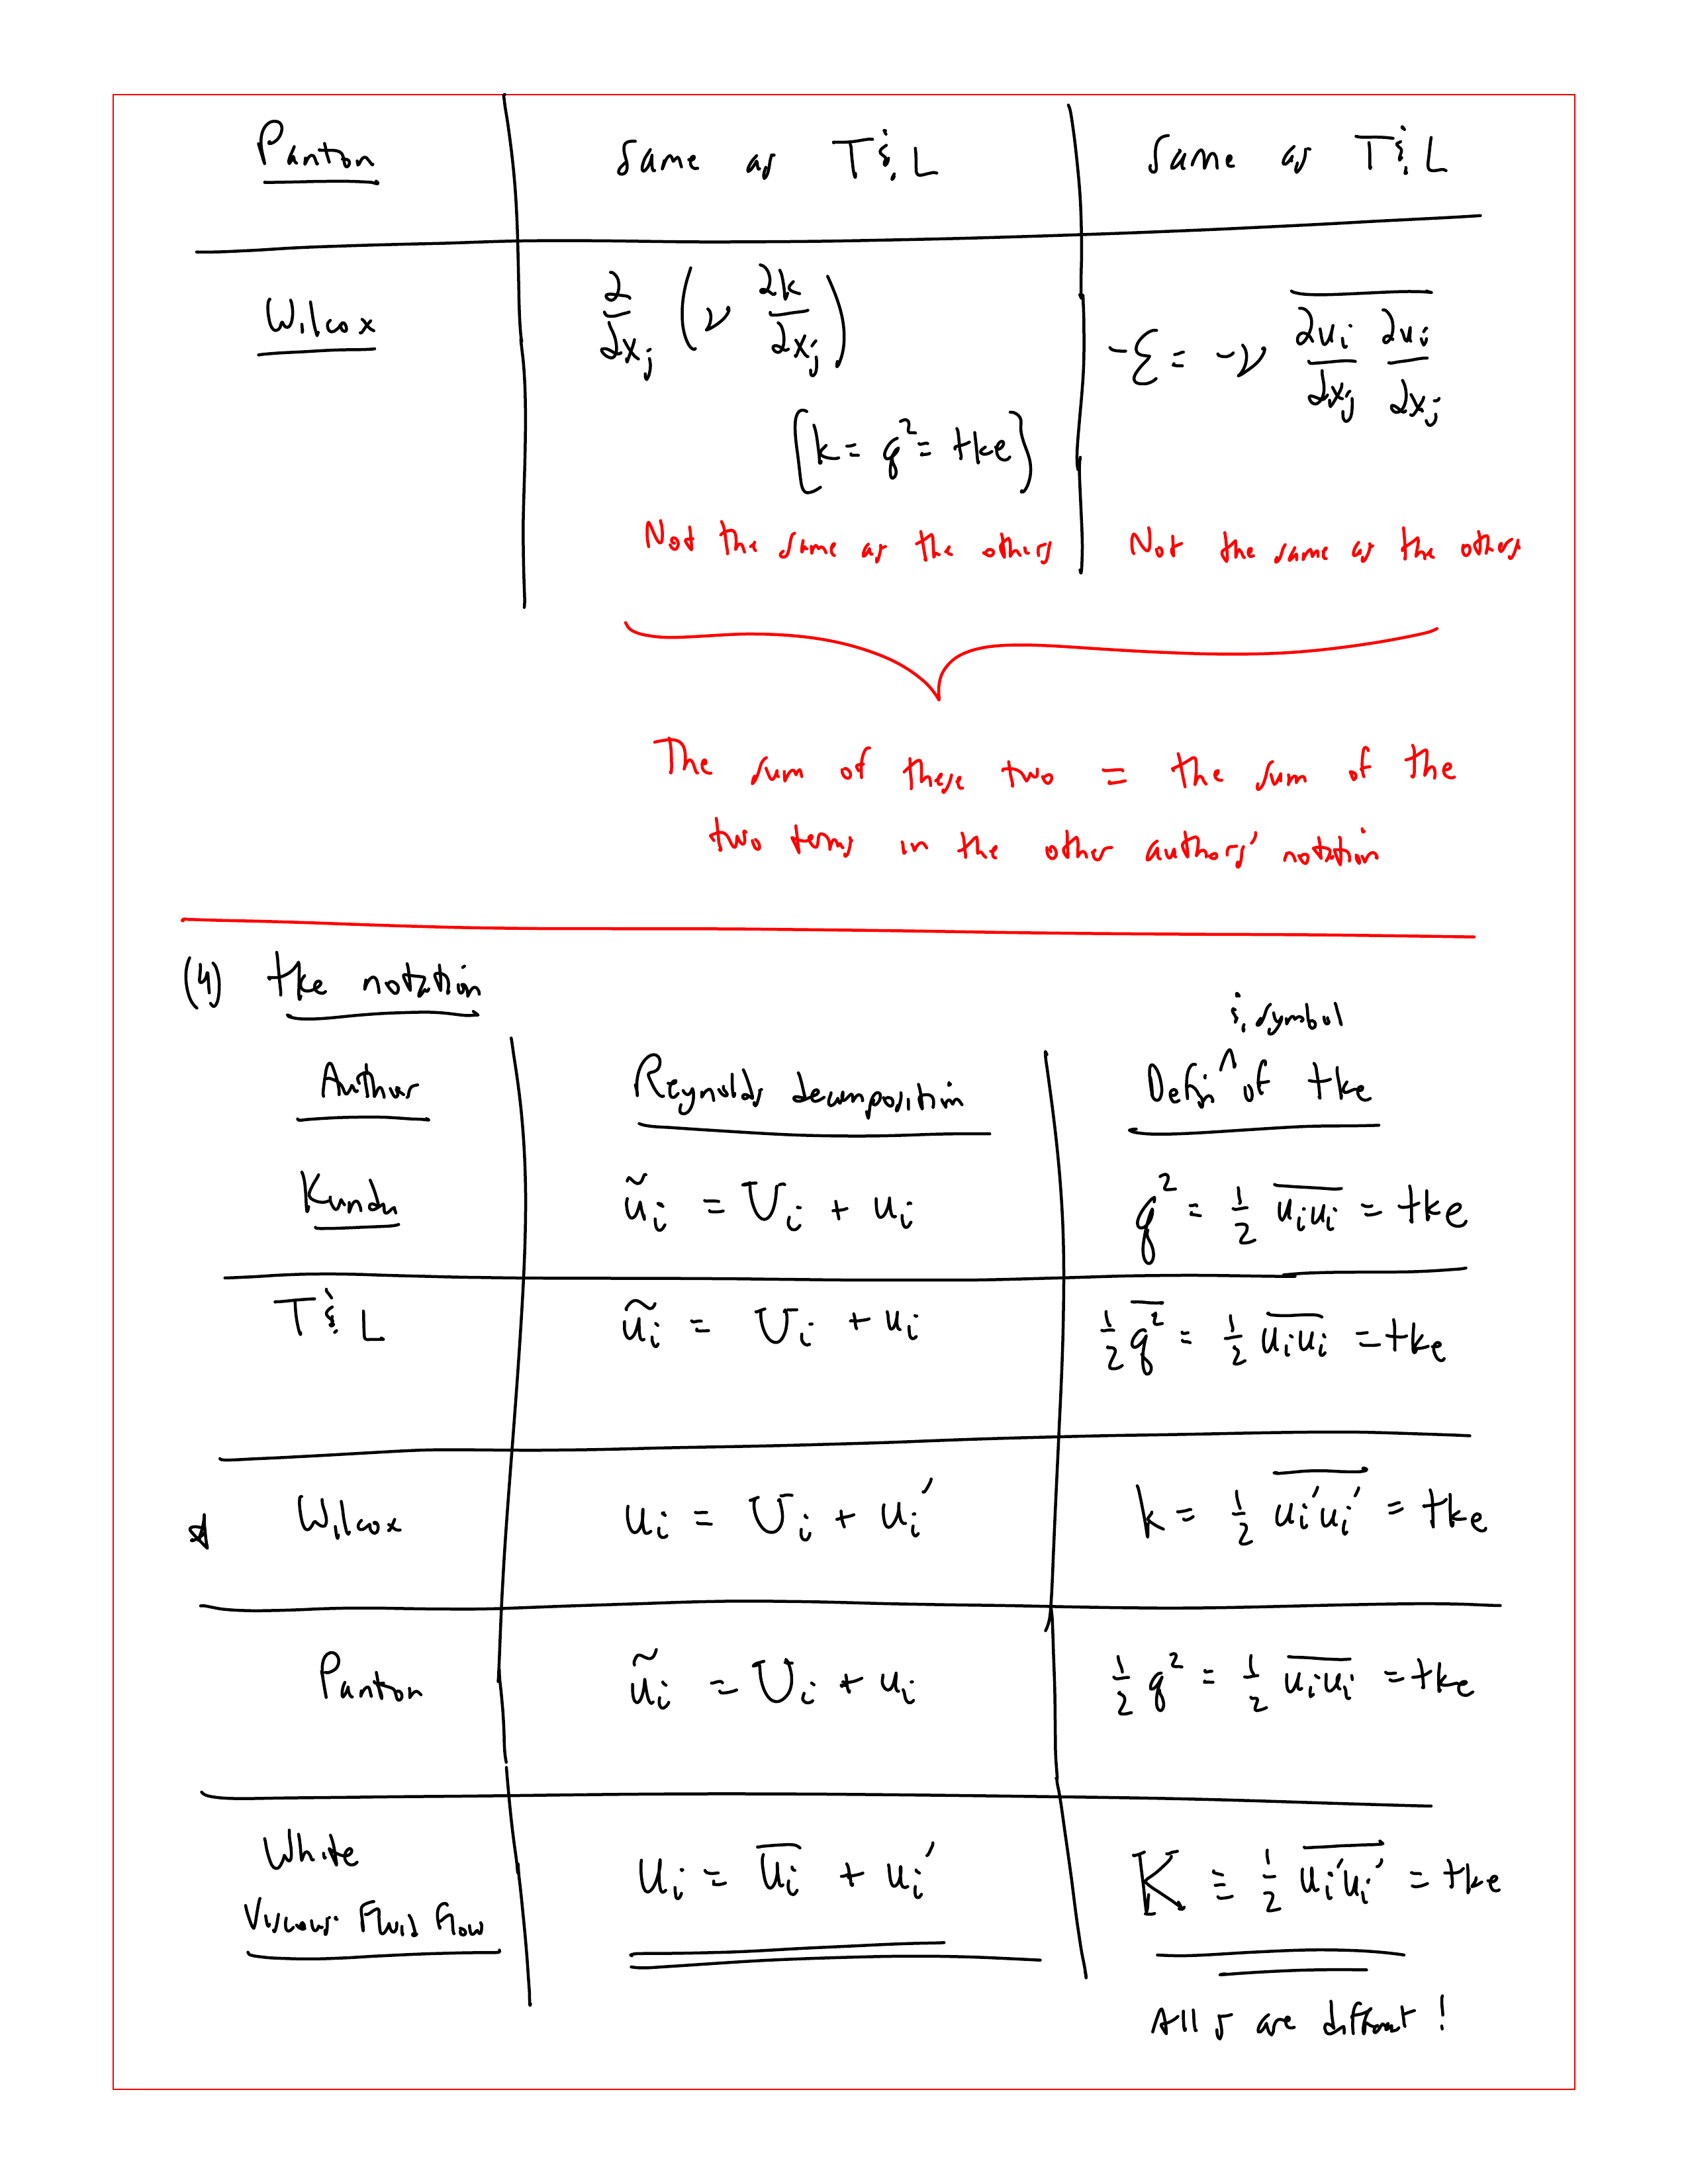 Panton | Same as T & L | Same as T & L
Wilcox | ∂/∂x_j (ν ∂k/∂x_j) | -ε = -ν \overline{∂u_i/∂x_j ∂u_i/∂x_j}
[k = q² = tke]
Not the same as the others | Not the same as the others
The sum of these two = the sum of the
two terms in the other authors' notation
(4) tke notation
& symbol
Author | Reynolds decomposition | Defn ^ of tke
Kundu | ũ_i = U_i + u_i | q² = ½ \overline{u_i u_i} = tke
T & L | ũ_i = U_i + u_i | ½ \overline{q²} = ½ \overline{u_i u_i} = tke
☆ Wilcox | u_i = U_i + u_i′ | k = ½ \overline{u_i′ u_i′} = tke
Panton | ũ_i = U_i + u_i | ½ q² = ½ \overline{u_i u_i} = tke
White | u_i = \overline{u_i} + u_i′ | K ≡ ½ \overline{u_i′ u_i′} = tke
Viscous Fluid Flow
All 5 are different!